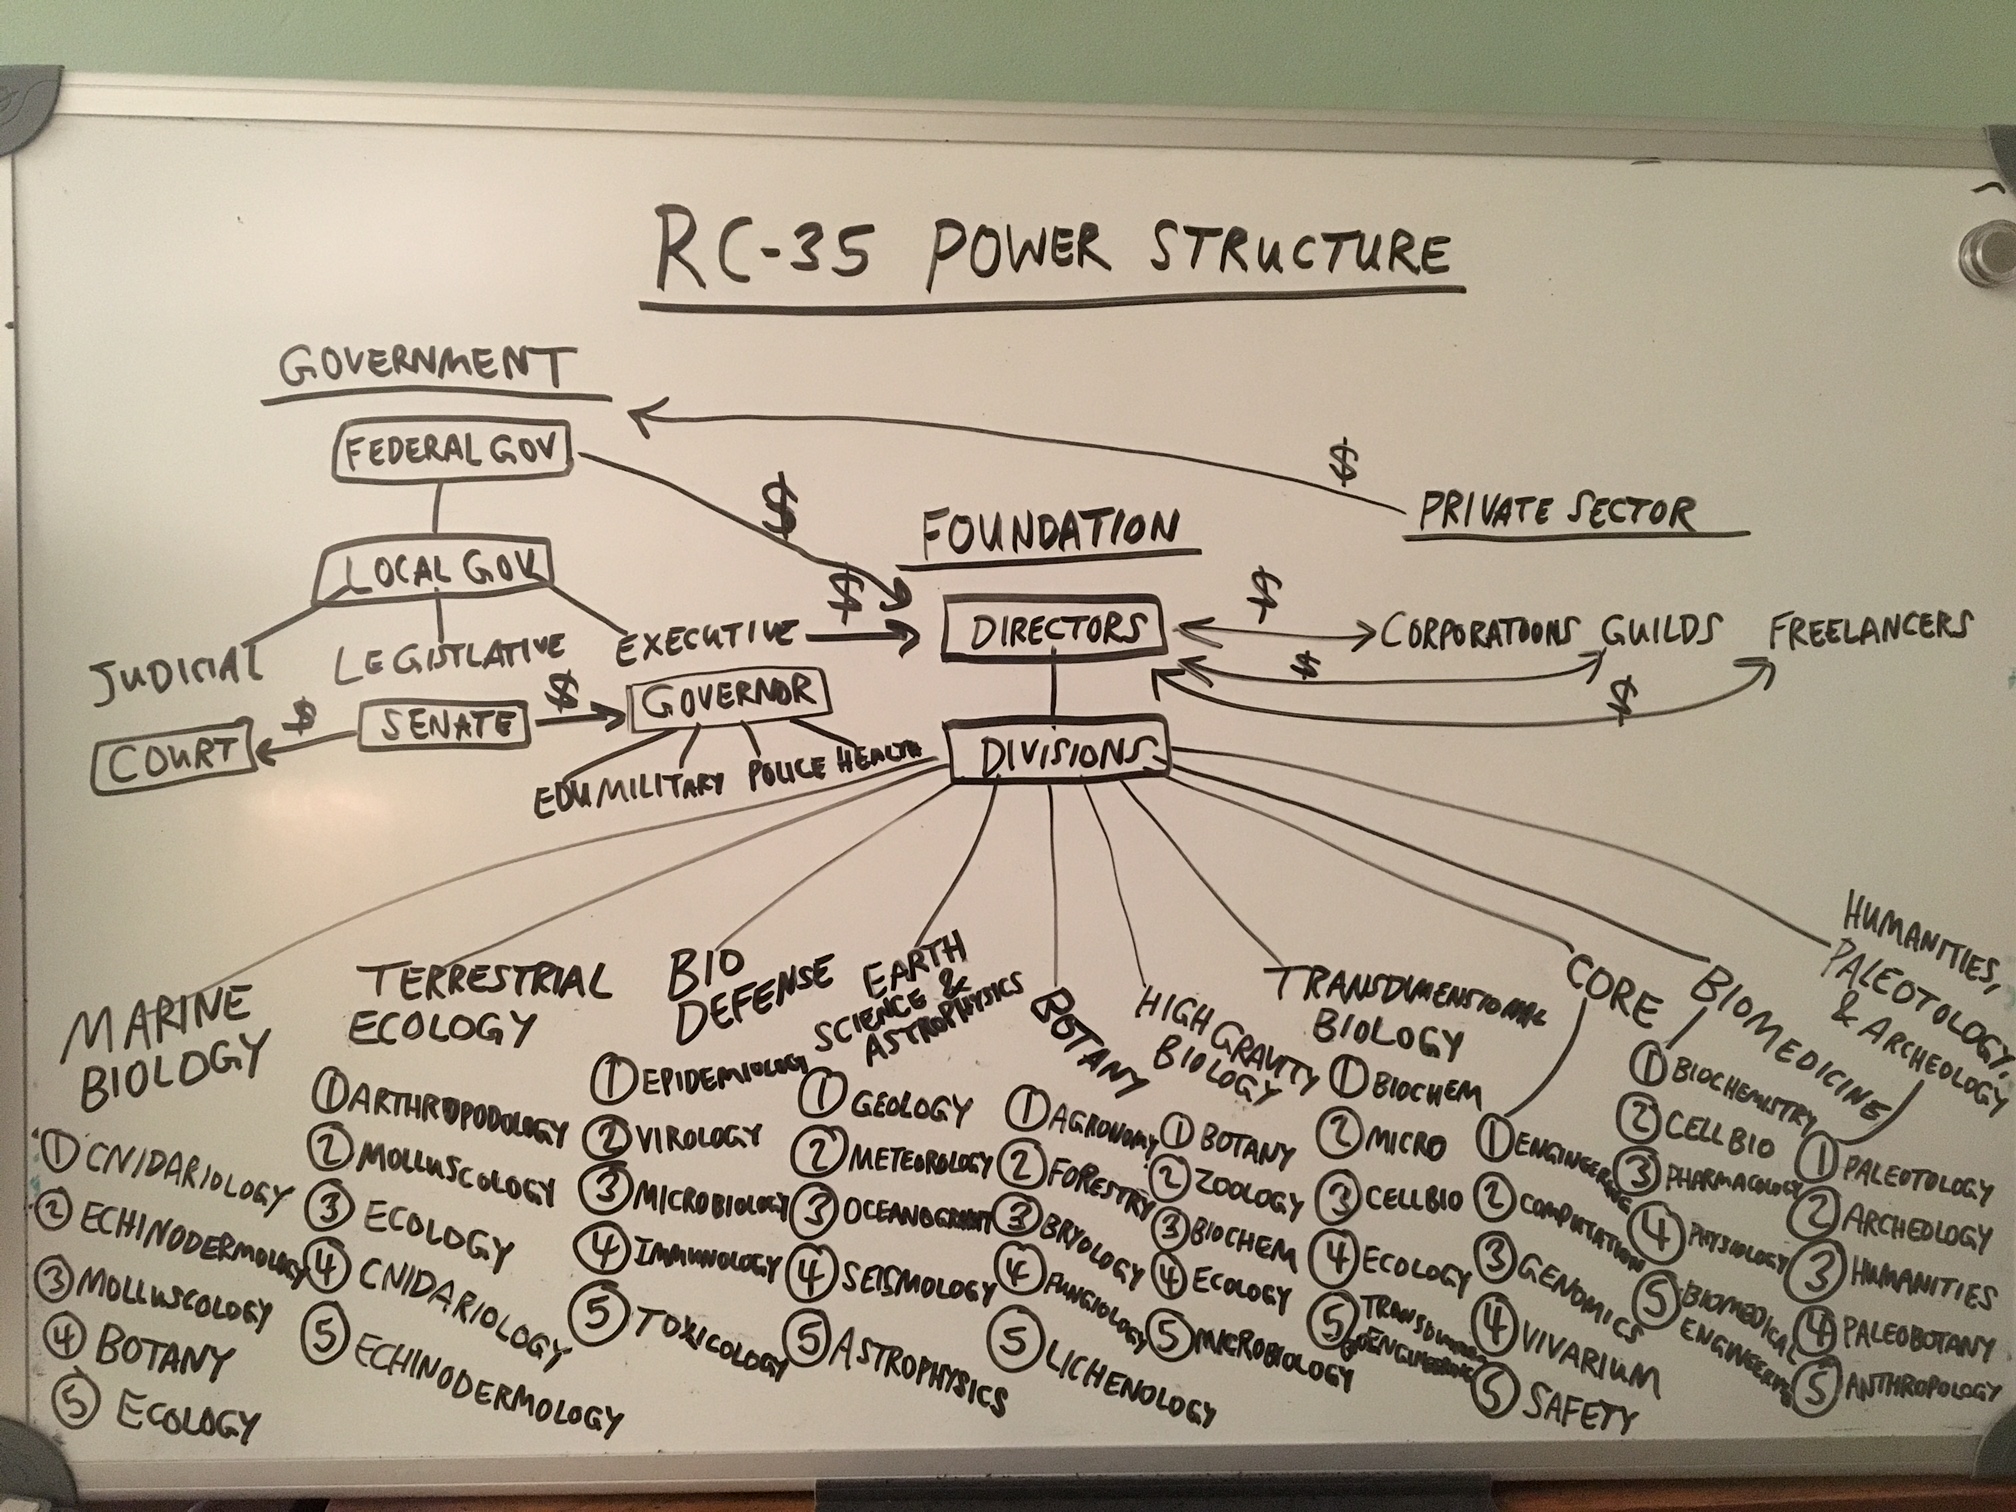 RC-35 POWER STRUCTURE
GOVERNMENT
FEDERAL GOV
LOCAL GOV
JUDICIAL
LEGISTLATIVE
EXECUTIVE
COURT
$
SENATE
$
GOVERNOR
EDU MILITARY POLICE HEALTH
$
$
FOUNDATION
DIRECTORS
DIVISIONS
$
PRIVATE SECTOR
$
CORPORATOONS GUILDS FREELANCERS
$
$
MARINE
BIOLOGY
① CNIDARIOLOGY
② ECHINODERMOLOGY
③ MOLLUSCOLOGY
④ BOTANY
⑤ ECOLOGY
TERRESTRIAL
ECOLOGY
① ARTHROPODOLOGY
② MOLLUSCOLOGY
③ ECOLOGY
④ CNIDARIOLOGY
⑤ ECHINODERMOLOGY
BIO
DEFENSE
① EPIDEMIOLOGY
② VIROLOGY
③ MICROBIOLOGY
④ IMMUNOLOGY
⑤ TOXICOLOGY
EARTH
SCIENCE &
ASTROPHYSICS
① GEOLOGY
② METEOROLOGY
③
④ SEISMOLOGY
⑤ ASTROPHYSICS
BOTANY
① AGRONOMY
② FORESTRY
③ BRYOLOGY
④ FUNGIOLOGY
⑤ LICHENOLOGY
HIGH GRAVITY
BIOLOGY
① BOTANY
② ZOOLOGY
③ BIOCHEM
④ ECOLOGY
⑤ MICROBIOLOGY
TRANSDIMENSIONAL
BIOLOGY
① BIOCHEM
② MICRO
③ CELLBIO
④ ECOLOGY
⑤
CORE
① ENGINEERING
② COMPUTATION
③ GENOMICS
④ VIVARIUM
⑤ SAFETY
BIOMEDICINE
① BIOCHEMISTRY
② CELLBIO
③ PHARMACOLOGY
④ PHYSIOLOGY
⑤ BIOMEDICAL
ENGINEERING
HUMANITIES,
PALEOTOLOGY,
& ARCHEOLOGY
① PALEOTOLOGY
② ARCHEOLOGY
③ HUMANITIES
④ PALEOBOTANY
⑤ ANTHROPOLOGY